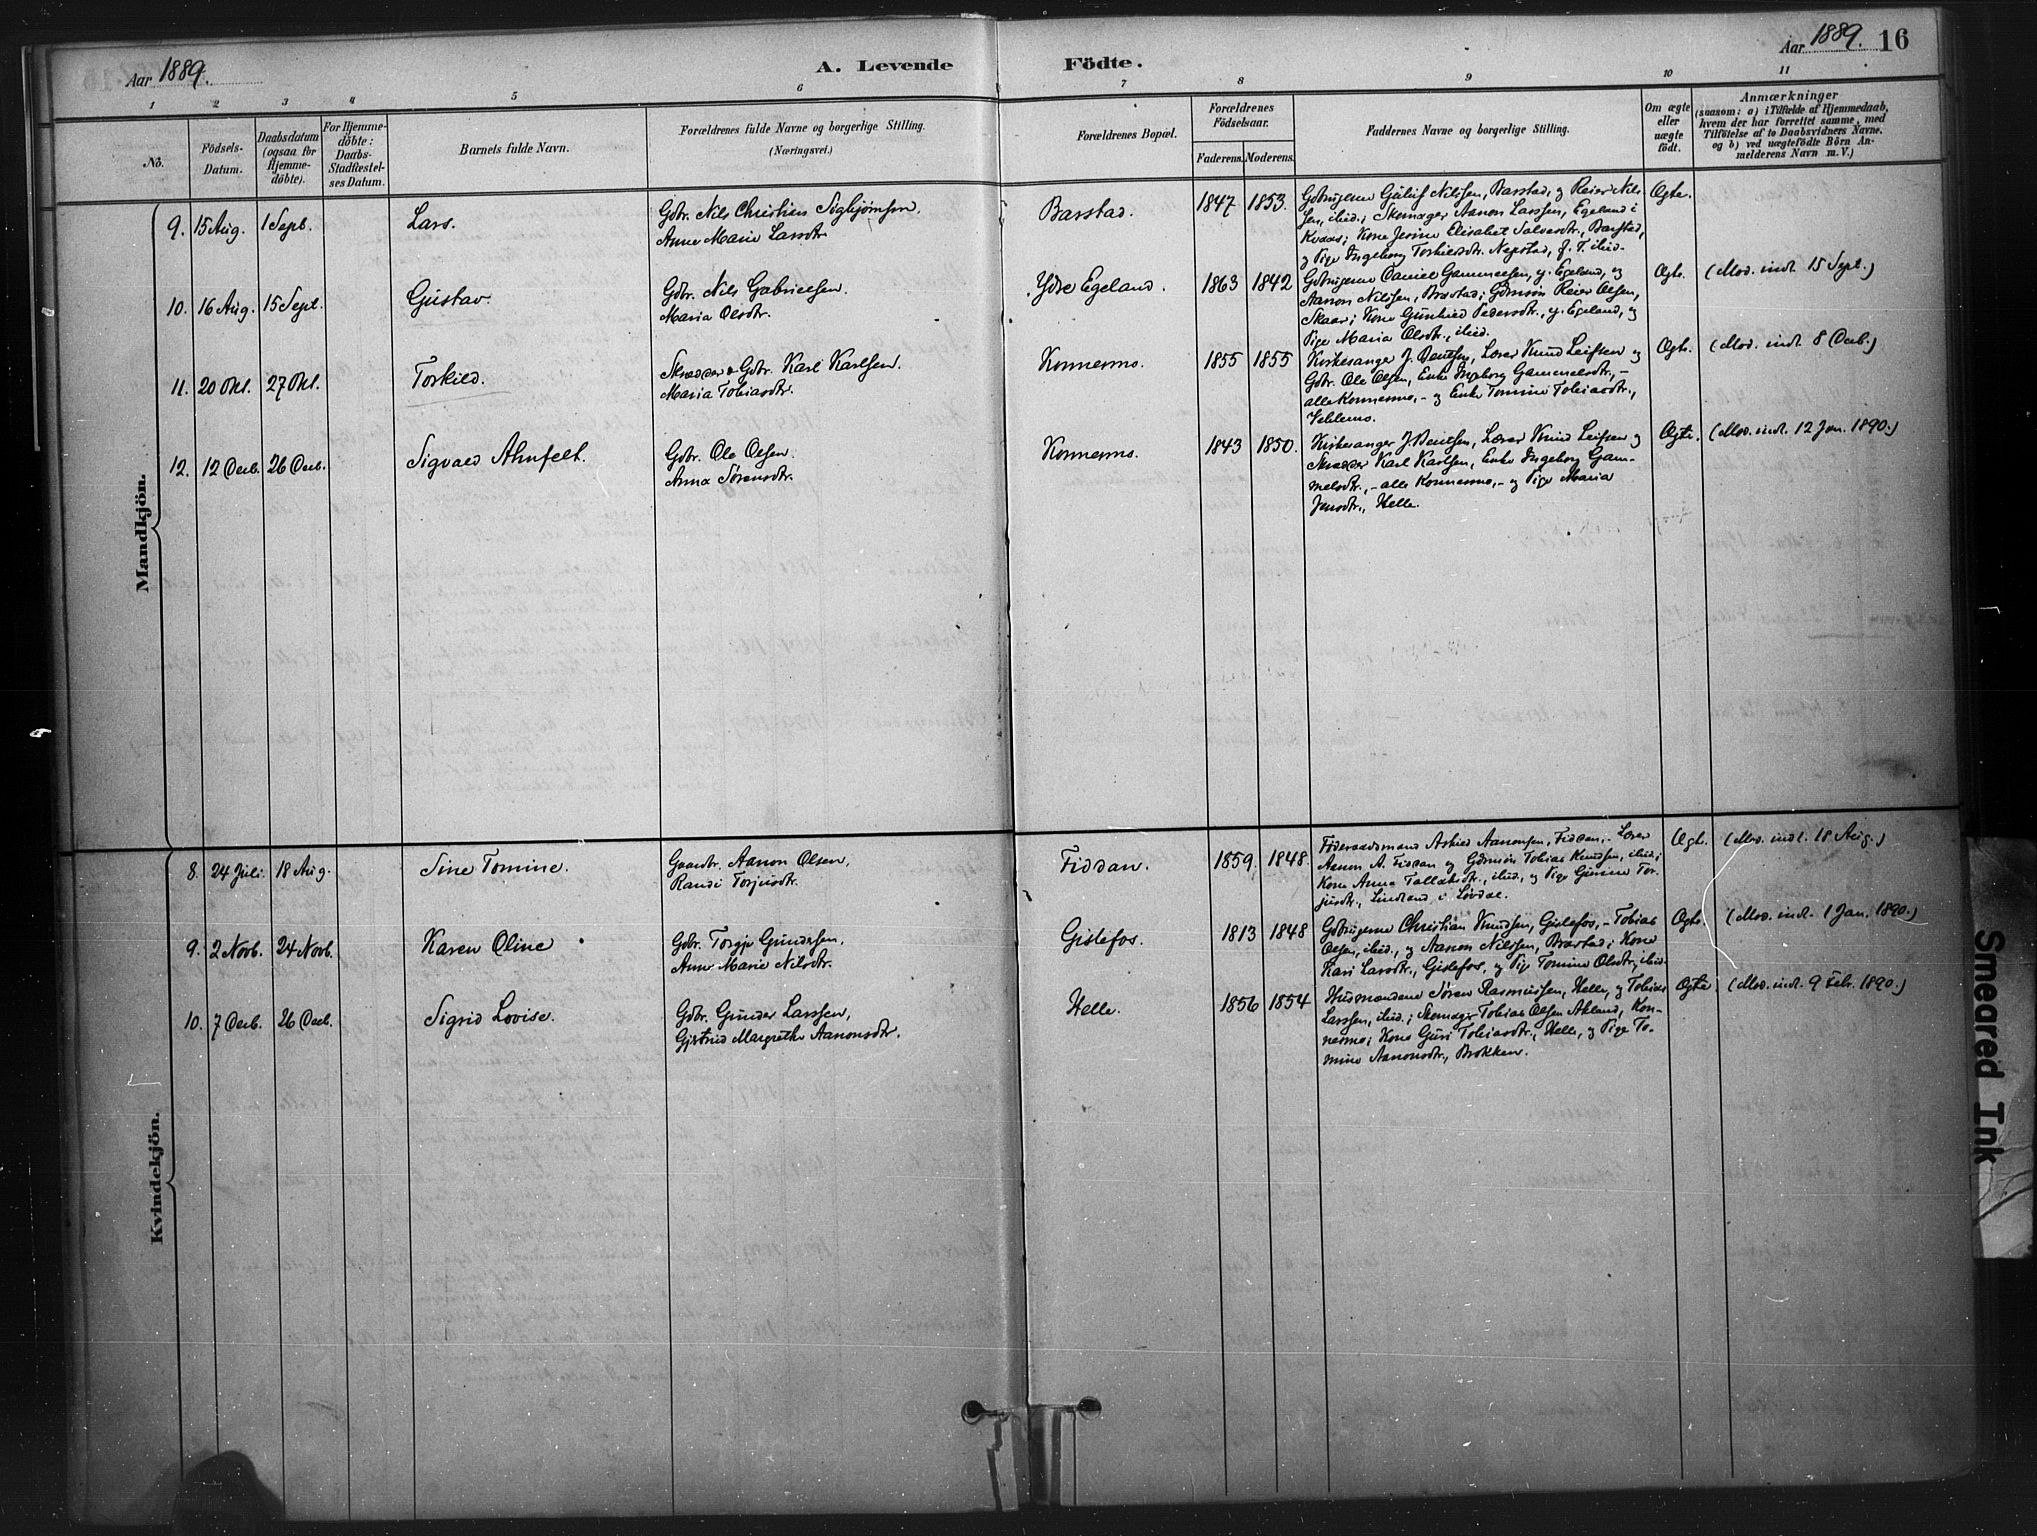 Aar 1889.
A. Levende Födte.
Aar 1889. 16
1 2 3 4 5 6 7 8 9 10 11
No.
Födsels-Datum.
Daabsdatum (ogsaa for Hjemme-döbte).
For Hjemme-döbte: Daabs-Stadfæstel-ses Datum.
Barnets fulde Navn.
Forældrenes fulde Navne og borgerlige Stilling.
(Næringsvei.)
Forældrenes Bopæl.
Forældrenes Födselsaar.
Faderens. Moderens.
Faddernes Navne og borgerlige Stilling.
Om ægte eller uægte födt.
Anmærkninger
(saasom: a) i Tilfælde af Hjemmedaab,
hvem der har forrettet samme, med
Tilföielse af to Daabsvidners Navne.
og b) ved uægtefödte Börn An-
melderens Navn m. V.)
Mandkjön.
9. 15 Aug. 1 Sept. Lars.
Gdbr. Nils Christian Sigbjørnsen.
Anne Marie Larsdtr.
Barstad. 1847 1853.
Gdbrugerne Guluf Nilssen, Barstad, og Reier Nils-
sen, ibid.; Skomager Aanon Larssen, Egeland i
Kvaas; Kone Jesine Elisabet Salvesdtr., Barstad,
og Pige Ingeborg Torkildsdtr. Nepstad, p. T. ibid.
Ægte.
10. 16 Aug. 15 Sept. Gustav.
Gdbr. Nils Gabrielsen.
Maria Olsdtr.
Ydre Egeland. 1863 1842
Gdbrugerne Daniel Gammelsen, y. Egeland, og
Aanon Nilssen, Brastad; Gdmsøn Reier Olsen,
Skaar; Kone Gunhild Pedersdtr., y. Egeland, og
Pige Maria Olsdtr., ibid.
Ægte. (Mod. indl. 15 Sept.)
11. 20 Okt. 27 Okt. Torkild.
Skrædder & Gdbr. Karl Karlsen.
Maria Tobiasdtr.
Konnesmo. 1855 1855
Kirkesanger J. Bentsen, Lærer Knud Leifsen og
Gdbr. Ole Olsen, Enke Ingeborg Gammelsdtr., -
alle Konnesmo, - og Enke Tomine Tobiasdtr.,
Veblemo.
Ægte. (Mod. indl. 8 Decb.)
12. 12 Decb. 26 Decb. Sigvald Ahnfelt.
Gdbr. Ole Olsen.
Anna Sørensdtr.
Konnesmo. 1843 1850.
Kirkesanger J. Bentsen, Lærer Knud Leifsen og
Skrædder Karl Karlsen, Enke Ingeborg Gam-
melsdtr., - alle Konnesmo, - og Pige Maria
Jensdtr., Helle.
Ægte. (Mod. indl. 12 Jan. 1890.)
Kvindekjön.
8. 24 Juli. 18 Aug. Sine Tomine.
Gaardbr. Aanon Olsen,
Randi Torjusdtr.
Fiddan. 1859. 1848.
Føderaadsmand Askild Aanonsen, Fiddan, Lærer
Aanon A. Fiddan og Gdmsøn Tobias Knudsen, ibid.;
Kone Anna Tallaksdtr., ibid., og Pige Gunne Tor-
jusdtr., Lindland i Løvdal.
Ægte. (Mod. indl. 18 Aug.)
9. 2 Novb. 24 Novb. Karen Oline
Gdbr. Torgje Gundersen,
Anne Marie Nilsdtr.
Gislefos. 1813 1848
Gdbrugerne Christian Knudsen, Gislefos, - Tobias
Olsen, ibid., og Aanon Nilssen, Brastad; Kone
Kari Larsdtr., Gislefos, og Pige Tomine Olsdtr., ibid.
Ægte. (Mod. indl. 1 Jan. 1890.)
10. 7 Decb. 26 Decb. Sigrid Lovise.
Gdbr. Gunder Larssen,
Gjertrud Margrethe Aanonsdtr.
Helle. 1856 1854
Husmændene Søren Rasmussen, Helle, og Tobias
Larssen, ibid.; Skomager Tobias Olsen Akland, Kon-
nesmo; Kone Guri Tobiasdtr., Helle, og Pige To-
mine Aanonsdtr., Brokken.
Ægte. (Mod. indl. 9 Febr. 1890.)
Smeared Ink